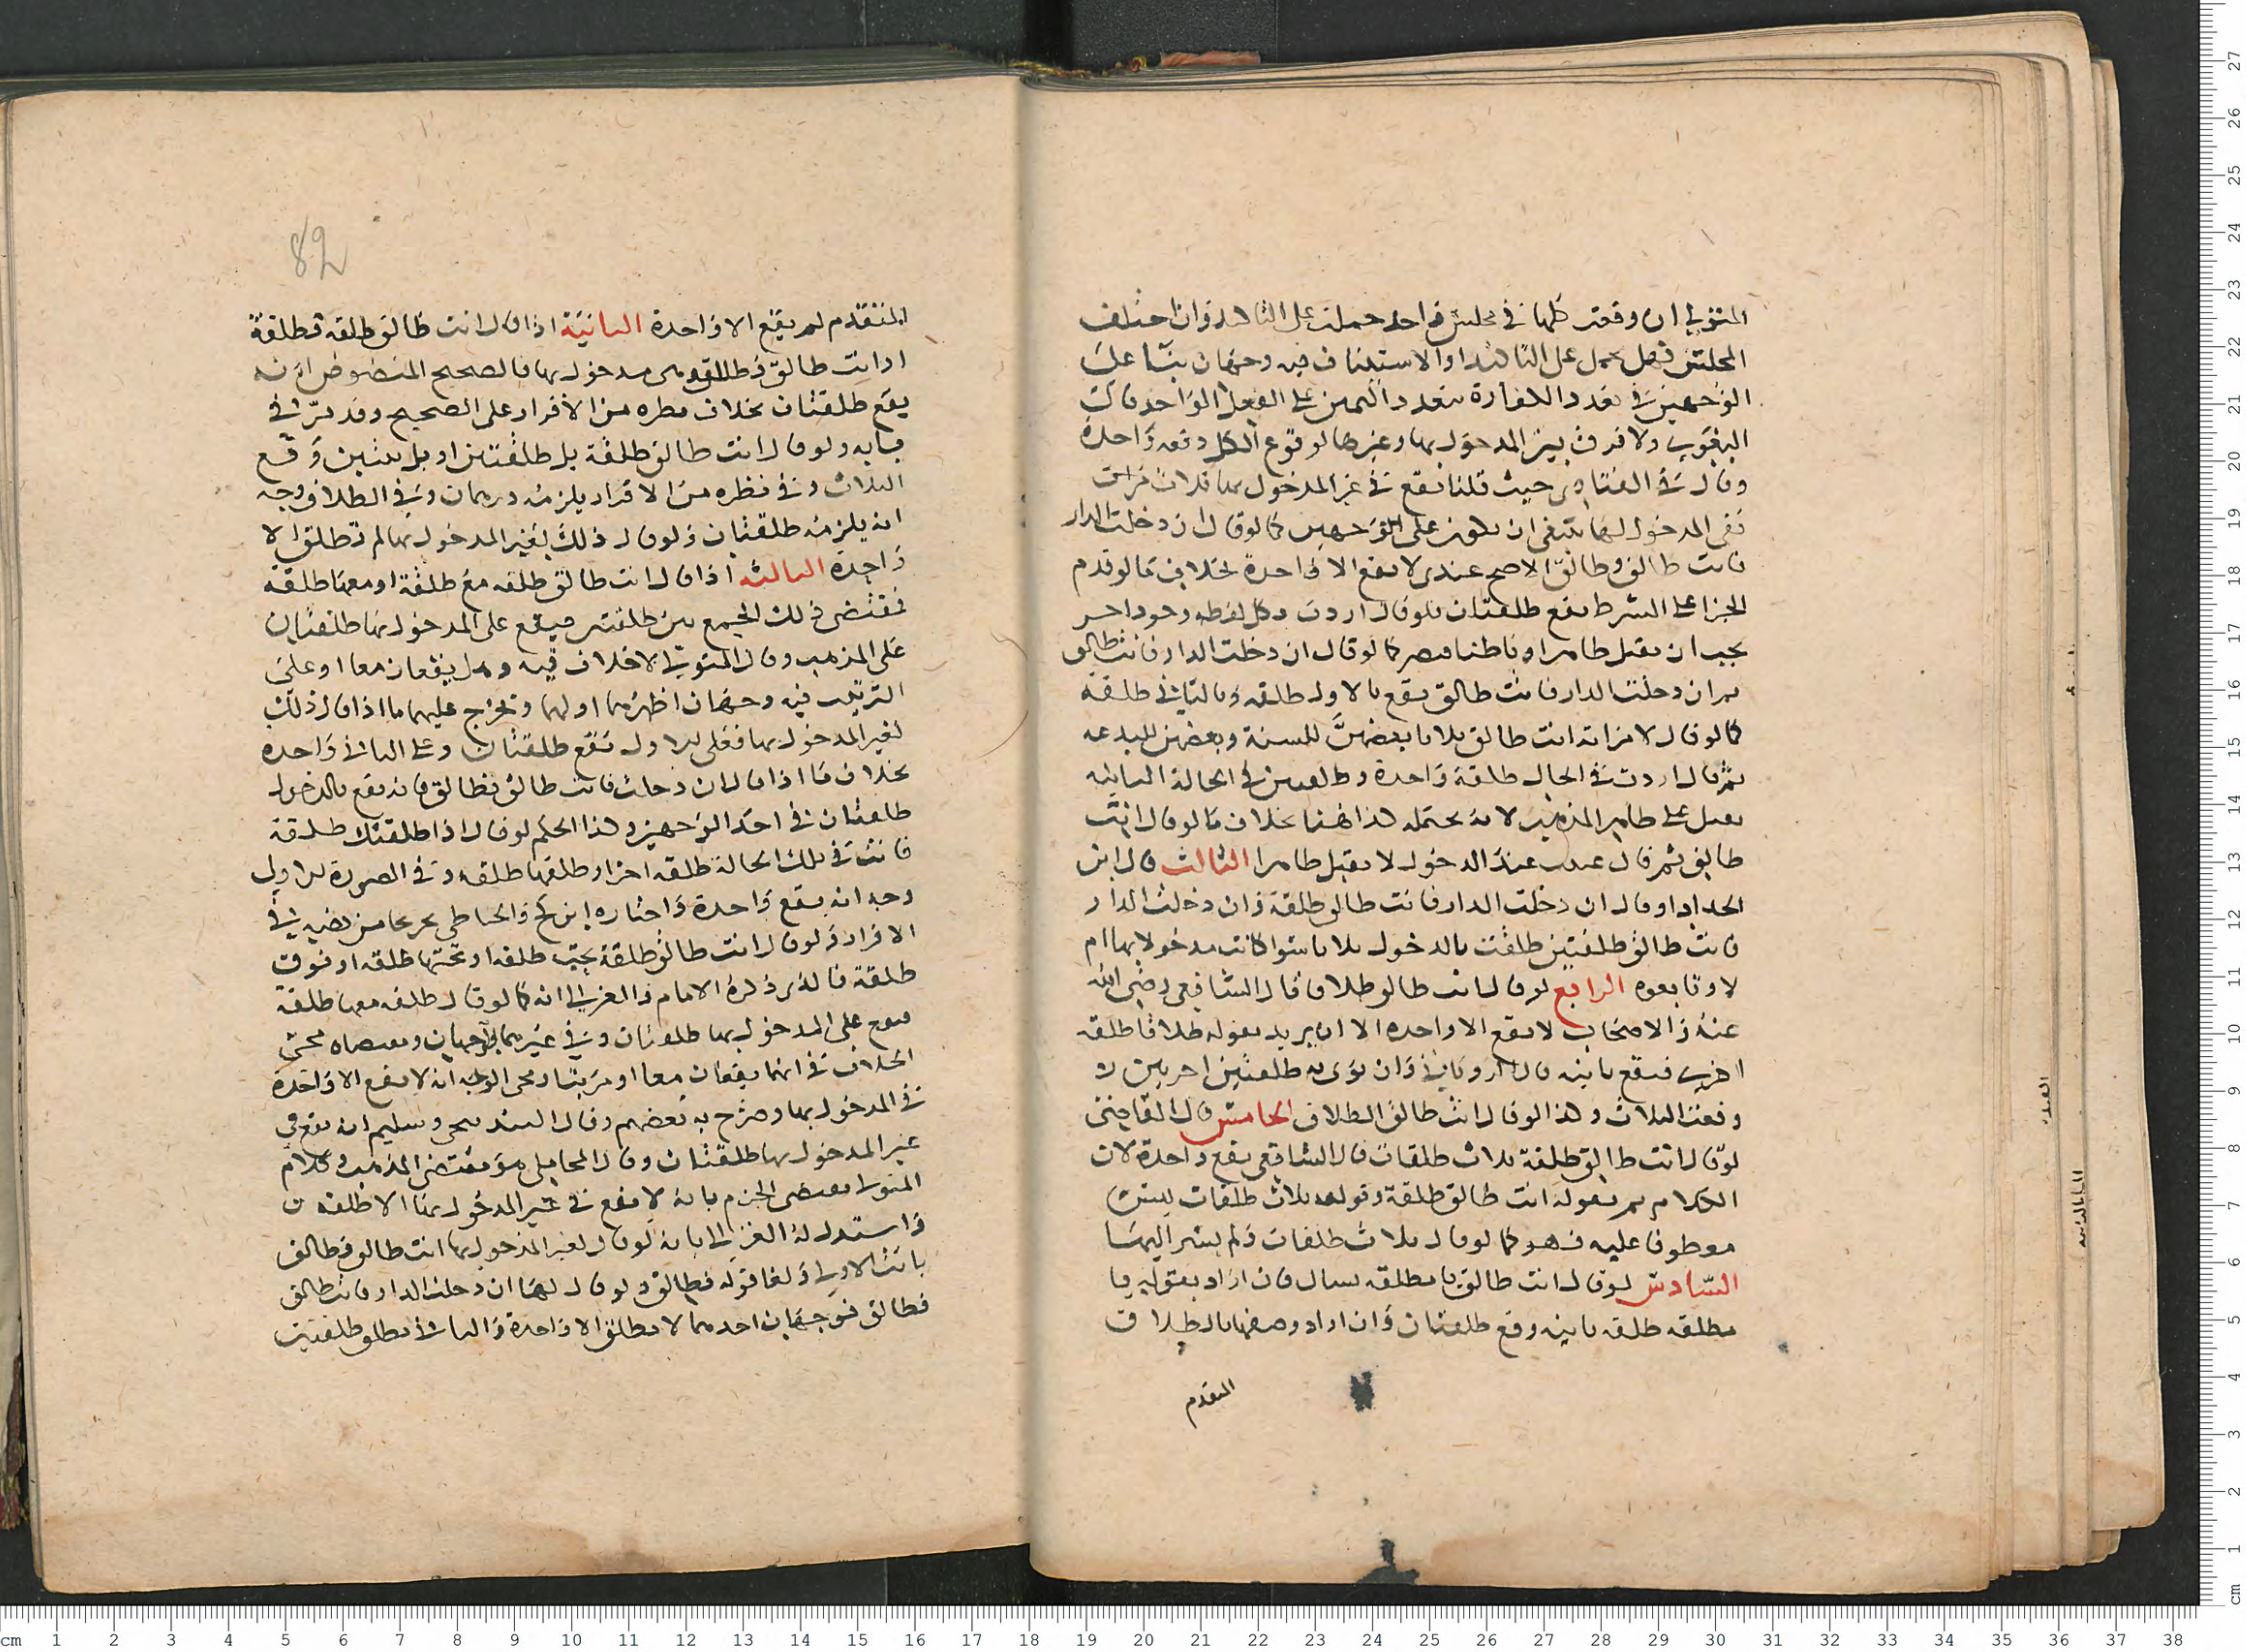 المتولي ان وقعت كلها في مجلس واحد حملت على التاكيد وان اختلف
المجلس فهل يحمل على التاكيد او الاستيناف فيه وجهان بنا على
الوجهين في تعدد الكفارة بتعدد اليمين على الفعل الواحد قال
البغوي ولا فرق بين المدخول بها وغيرها لوقوع الكل دفعه واحدة
وقال في الفتاوى حيث قلنا يقع في غير المدخول بها ثلاث
ففي المدخول بها ينبغي ان يكون على الوجهين كما لو قال ان دخلت الدار
فانت طالق وطالق الاصح عندي لا يقع الا واحدة بخلاف ما لو قدم
الجزا على الشرط يقع طلقتان فلو قال اردت بكل لفظه
يجب ان يقبل ظاهرا وباطنا كما لو قال ان دخلت الدار فانت طالق
ثم ان دخلت الدار فانت طالق يقع بالاولى طلقه وبالثاني طلقة
كما لو قال لامراته انت طالق ثلاثا بعضهن للسنة وبعضهن للبدعه
ثم قال اردت في الحال طلقة واحدة وطلقتين في الحالة الثانيه
يقبل على ظاهر المذهب لانه يحتمله هذا بخلاف ما لو قال انت
طالق ثم قال عنيت عند الدخول لا يقبل ظاهرا الثالث قال ابن
الحداد لو قال ان دخلت الدار فانت طالق طلقة وان دخلت الدار
فانت طالق طلقتين طلقت بالدخول ثلاثا سوا كانت مدخولا بها ام
لا وتابعوه الرابع لو قال انت طالق طلاقا قال الشافعي رضي الله
عنه والاصحاب لا يقع الا واحده الا ان يريد بقوله طلاقا طلقه
اخرى فيقع ثانيه قال الروياني وان نوى به طلقتين اخريين
وقعت الثلاث وكذا لو قال انت طالق الطلاق الخامس قال القاضي
لو قال انت طالق طلقة ثلاث طلقات قال الشافعي يقع واحدة لان
الكلام تم بقوله انت طالق طلقة وقوله ثلاث طلقات ليس
معطوفا عليه فهو كما لو قال ثلاث طلقات ولم يشر اليها
السادس لو قال انت طالق يا مطلقه يسال فان اراد بقوله يا
مطلقه طلقه ثانيه وقع طلقتان وان اراد وصفها بالطلاق
المتقدم
82
المتقدم لم يقع الا واحدة الثانية اذا قال انت طالق طلقه فطلقة
او انت طالق فطالق وهي مدخول بها فالصحيح المنصوص انه
يقع طلقتان بخلاف نظيره من الاقرار على الصحيح وقد مر في
بابه ولو قال انت طالق طلقة بل طلقتين او بل ثنتين وقع
الثلاث وفي نظيره من الاقرار يلزمه درهمان وفي الطلاق وجه
انه يلزمه طلقتان ولو قال ذلك لغير المدخول بها لم تطلق الا
واحدة الثالثه اذا قال انت طالق طلقه مع طلقة او معها طلقة
فمقتضى ذلك الجمع بين طلقتين فيقع على المدخول بها طلقتان
على المذهب وقال المتولي لا خلاف فيه وهل يقعان معا او على
الترتيب فيه وجهان اظهرهما اولهما وتخرج عليهما ما اذا قال ذلك
لغير المدخول بها فعلى الاول تقع طلقتان وعلى الثاني واحده
بخلاف ما اذا قال ان دخلت فانت طالق فطالق فانه يقع بالدخول
طلقتان في احد الوجهين وهذا الحكم لو قال اذا طلقتك طلقة
فانت في تلك الحالة طلقه اخرى وطلقها طلقه وفي الصورة الاولى
وجه انه يقع واحدة واختاره ابن كج والحناطي تخريجا من نصه في
الاقرار ولو قال انت طالق طلقة تحت طلقه او تحتها طلقه او فوق
طلقة فالذي ذكره الامام والغزالي انه كما لو قال طلقه معها طلقة
فيقع على المدخول بها طلقتان وفي غيرها الوجهان ومقتضاه مجي
الخلاف في انهما يقعان معا او مرتبا وحكى الوجه انه لا يقع الا واحدة
في المدخول بها وصرح به بعضهم وقال البندنيجي وسليم انه يقع في
غير المدخول بها طلقتان وقال المحاملي هو مقتضى المذهب وكلام
المتولي يقتضي الجزم بانه لا يقع في غير المدخول بها الا طلقه
واستدل له الغزالي بانه لو قال لغير المدخول بها انت طالق فطالق
بانت الاولى ولغا قوله فطالق ولو قال لها ان دخلت الدار فانت طالق
فطالق فوجهان احدهما لا يطلق الا واحدة والثاني يطلق طلقتين